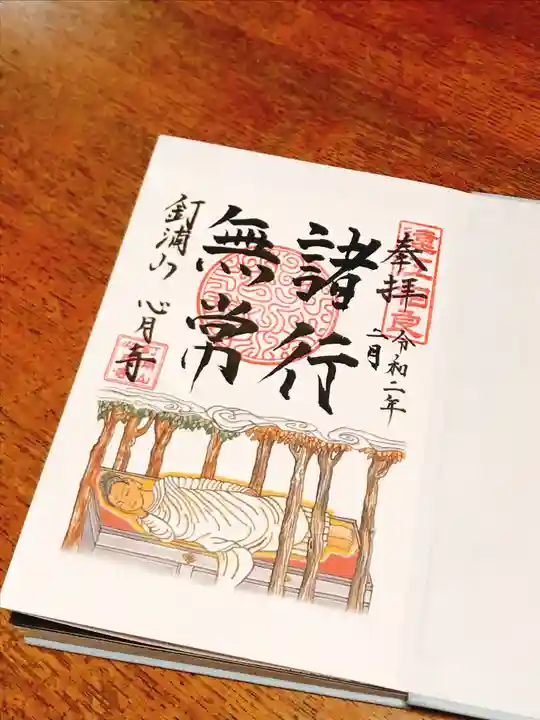 奉拝
令和二年
二月
諸行
無常
釘浦山 心月寺